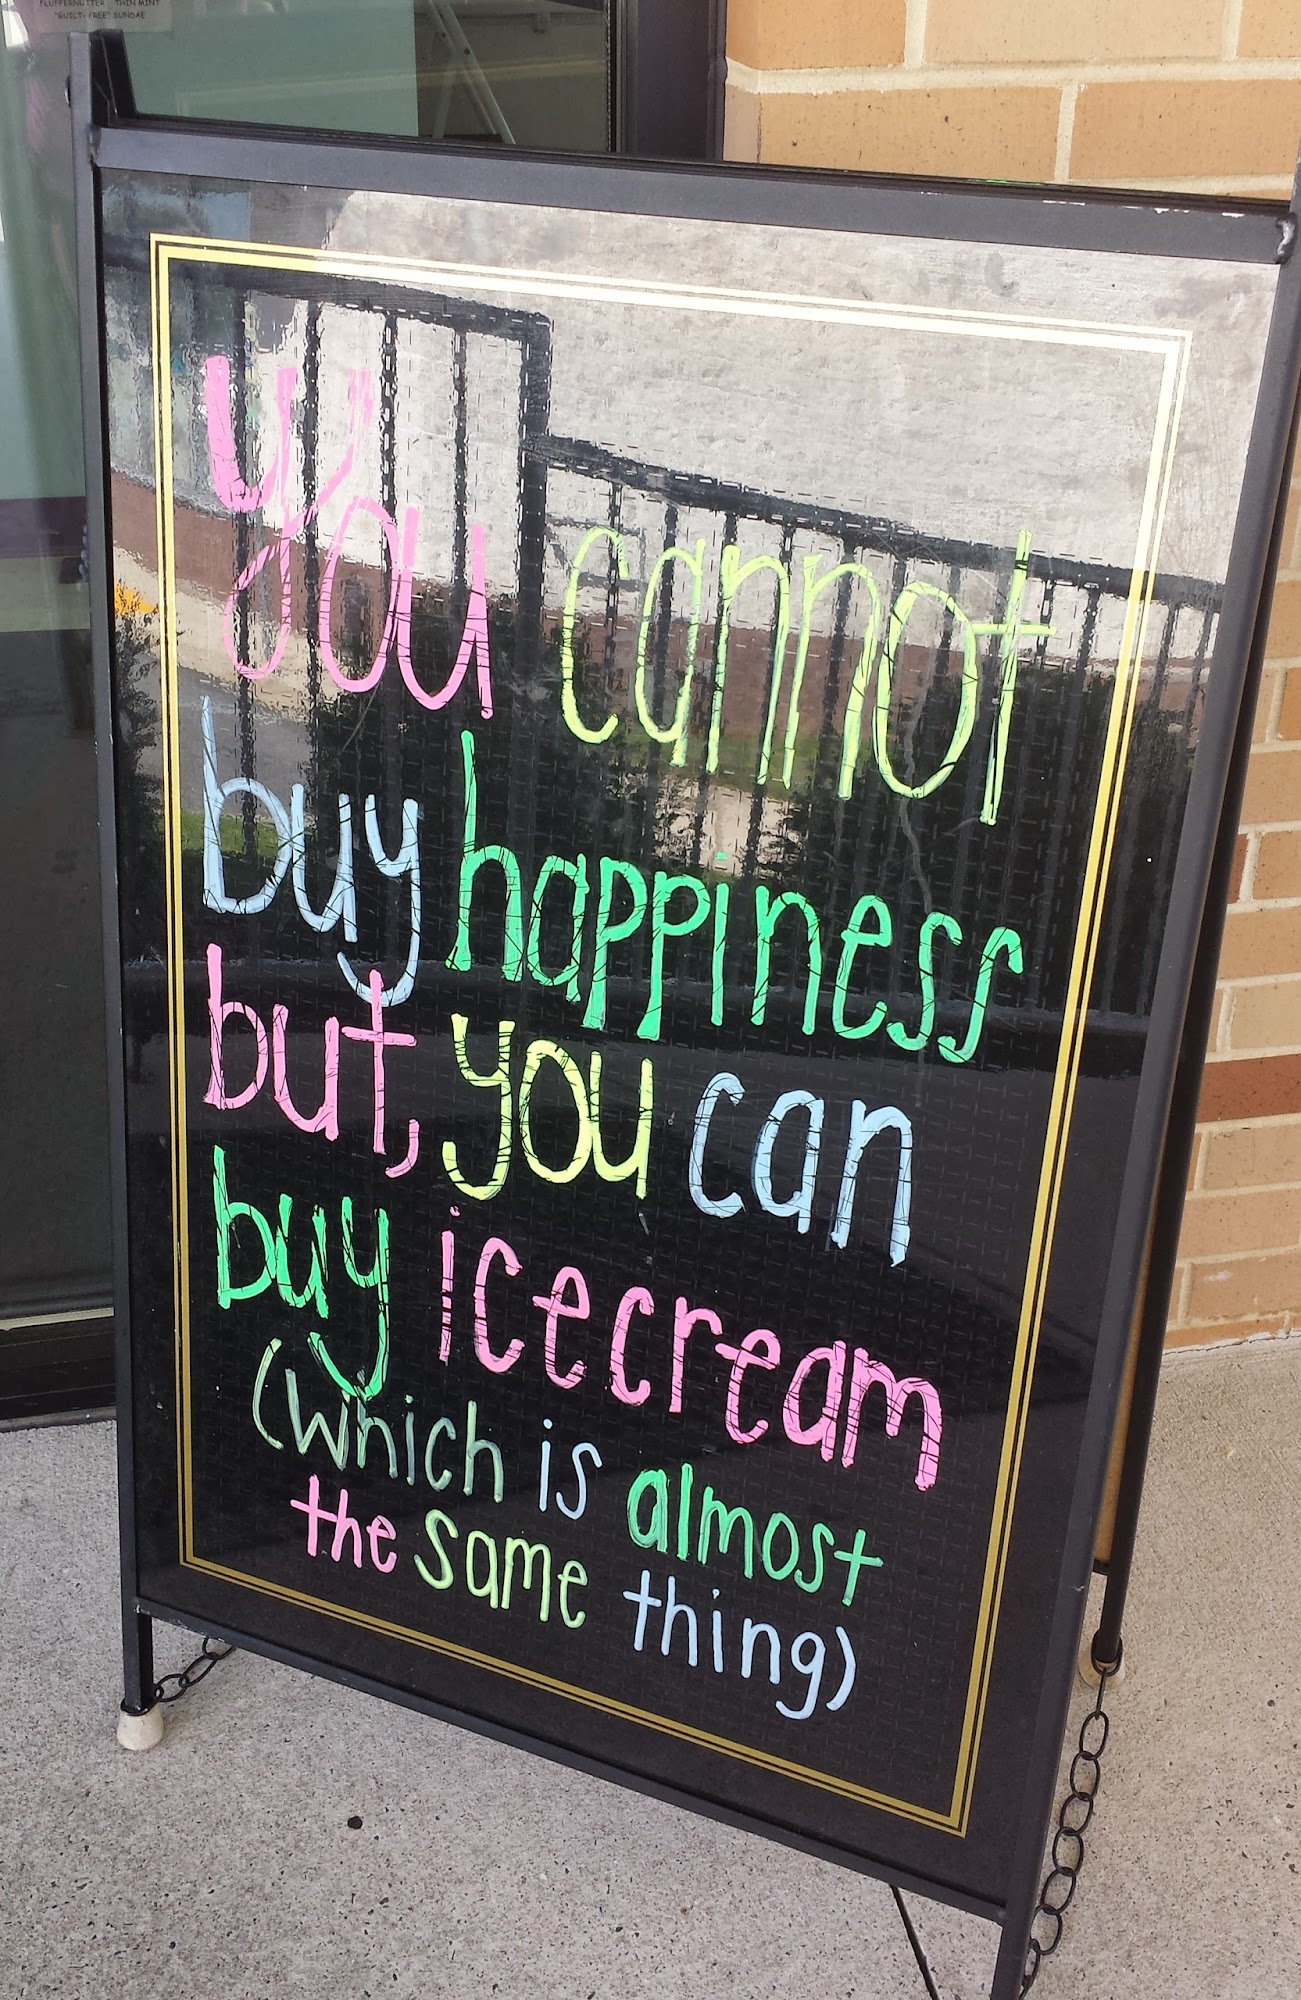 FLUFFERNUTTER THIN MINT
"GUILT-FREE" SUNDAE
you cannot
buy happiness
but, you can
buy icecream
(which is almost
the same thing)